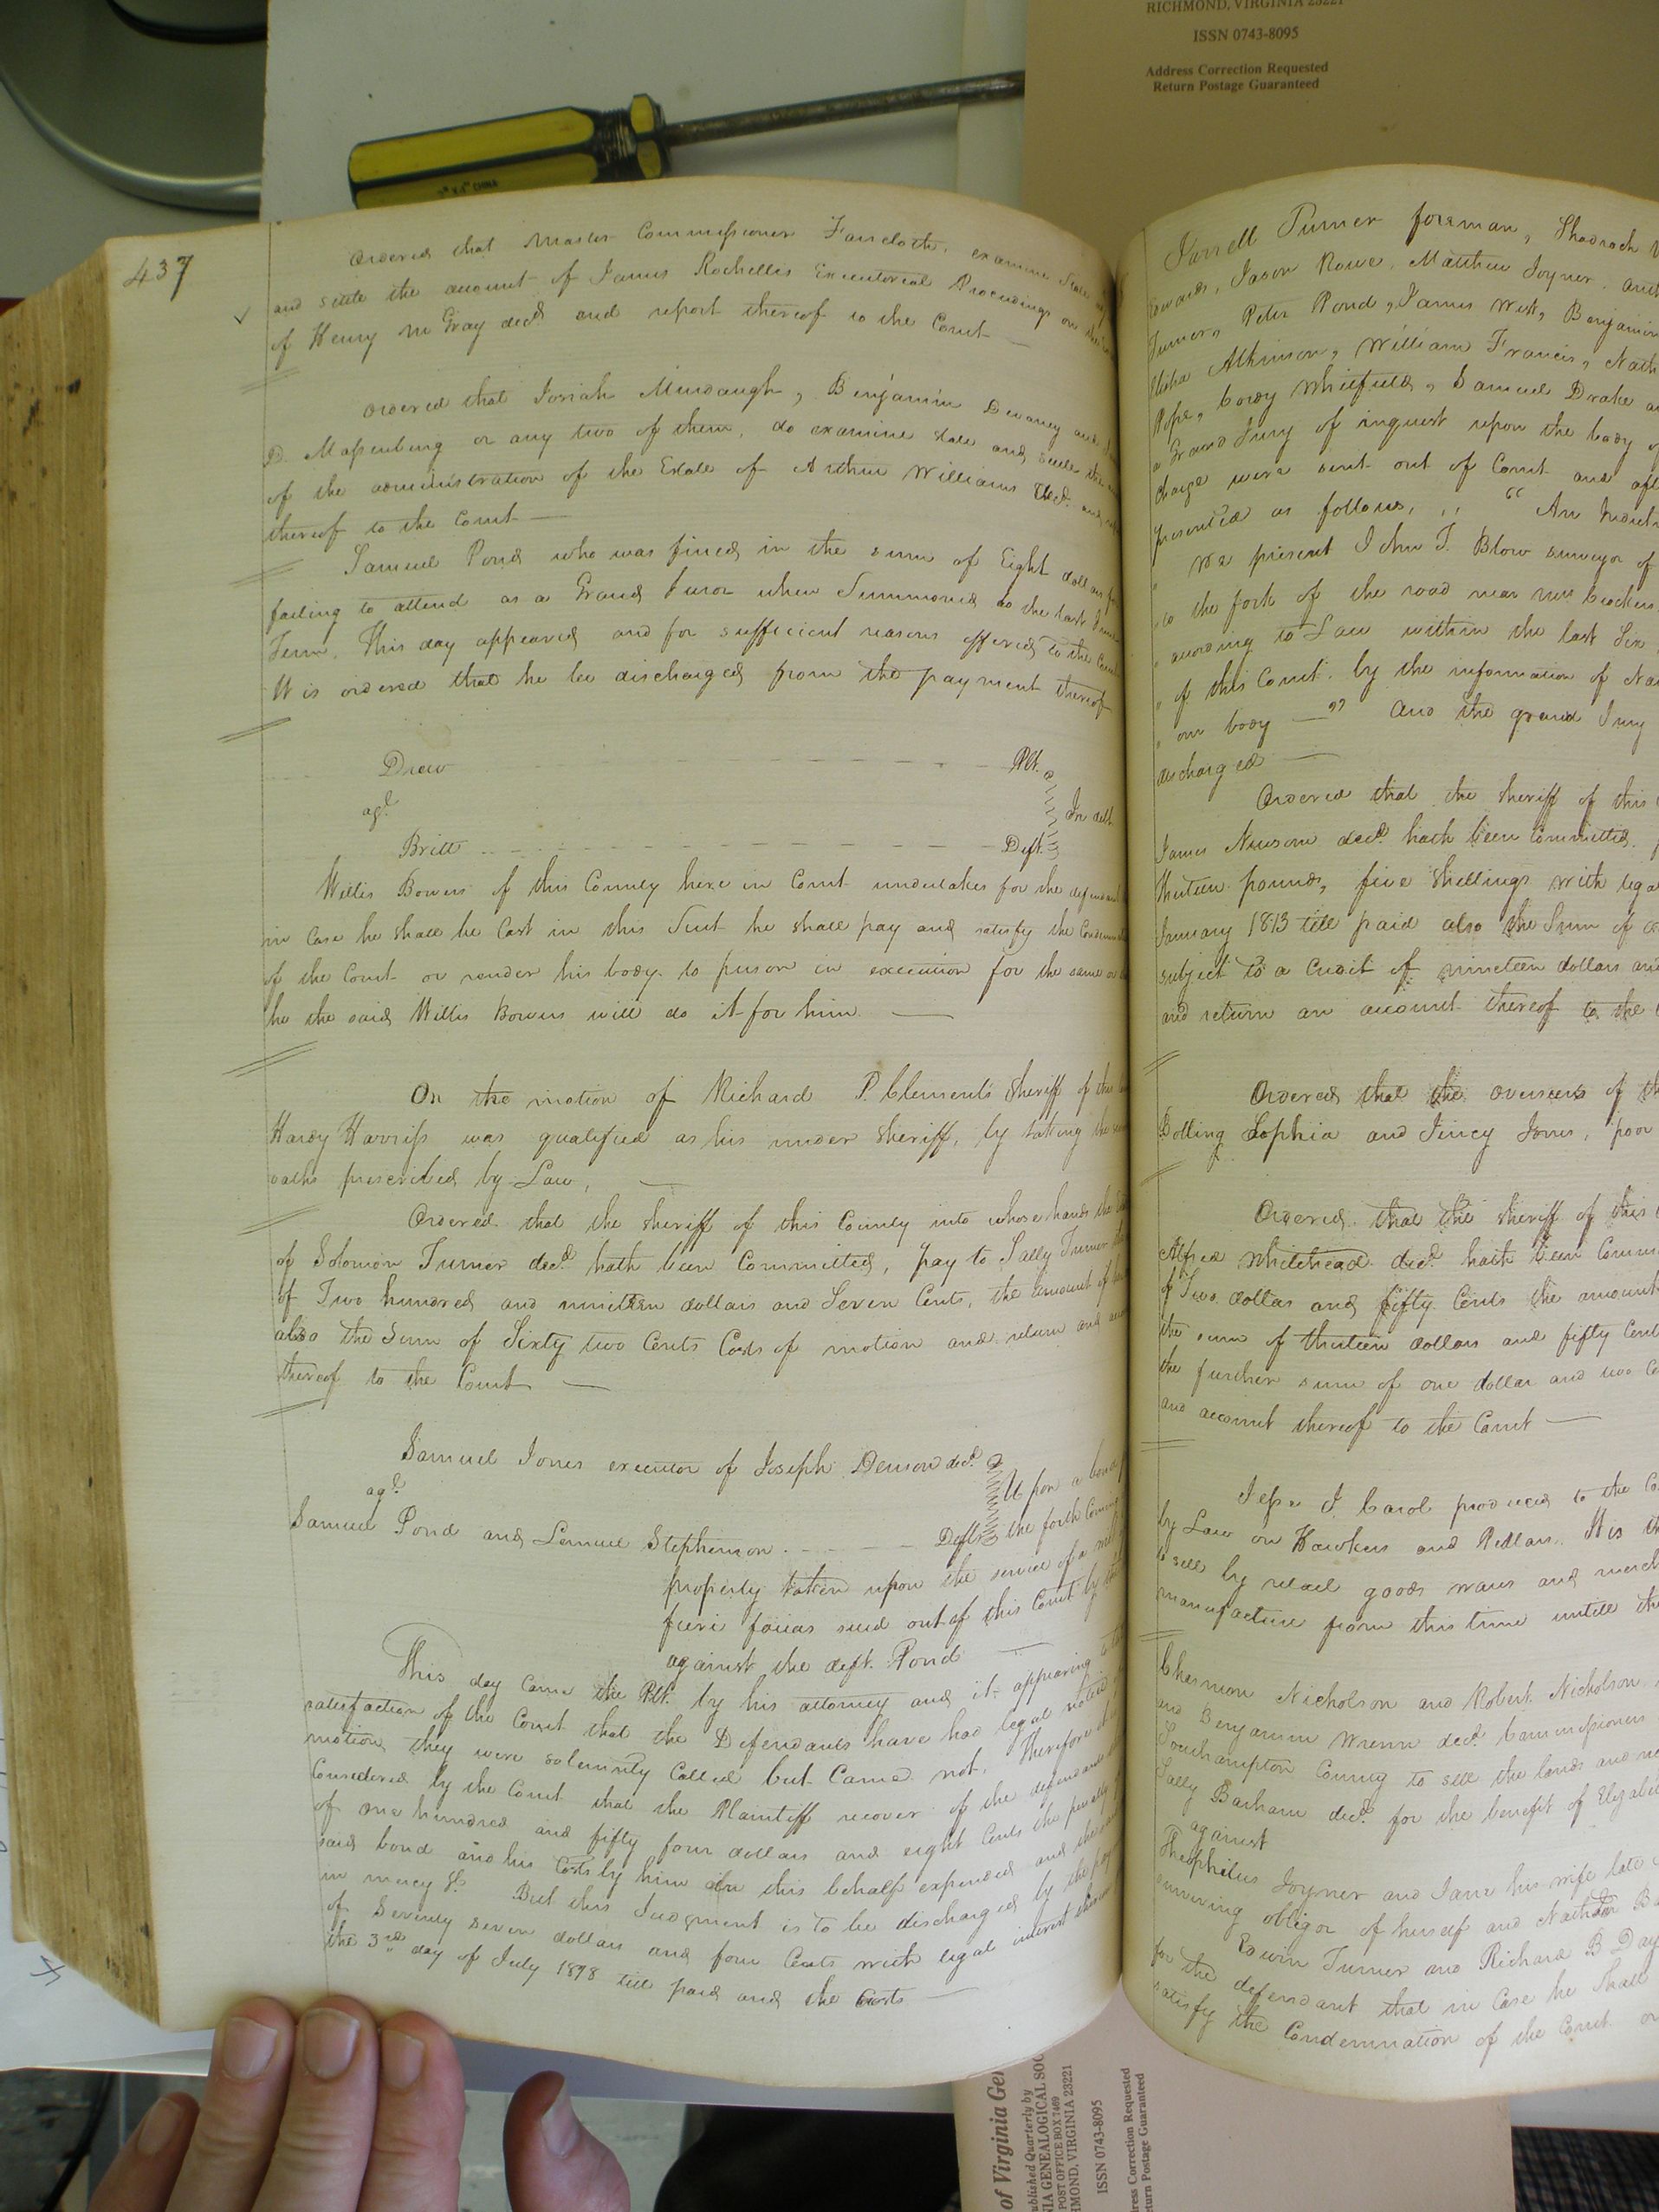 RICHMOND, VIRGINIA 23221
ISSN 0743-8095
Address Correction Requested
Return Postage Guaranteed
437
Ordered that Master Commissioner Faircloth, examine State
and settle the account of James Rochelles Executorial Proceedings on
of Henry M Gray decd and report thereof to the Court
Ordered that Josiah Mundaugh, Benjamin Devany and
D. Massenburg or any two of them, do examine state and settle the
of the administration of the Estate of Arthur Williams decd. and
thereof to the Court
Samuel Pond who was fined in the sum of Eight dollars for
failing to attend as a Grand Juror when Summoned to the last June
Term. This day appeared and for sufficient reasons offered to the Court
It is ordered that he be discharged from the payment thereof
Drew Plt.
agt.
In debt
Britt Deft.
Willis Bowers of this County here in Court undertakes for the defendant
in Case he shall be Cast in this Suit he shall pay and satisfy the
of the Court or render his body to prison in execution for the same or
he the said Willis Bowers will do it for him
On the motion of Richard P. Clements Sheriff of this
Hardy Harriss was qualified as his under Sheriff, by taking the
oaths prescribed by Law,
Ordered that the Sheriff of this County into whose hands the
of Solomon Turner decd. hath been Committed, pay to Sally Turner the
of Two hundred and nineteen dollars and Seven Cents, the amount of
also the Sum of Sixty two Cents Costs of motion and return and
thereof to the Court
Samuel Jones executor of Joseph Denson decd.
agt.
Upon a bond
Samuel Pond and Lemuel Stephenson Defts. the forth Coming
property taken upon the service of a
fieri facias sued out of this Court by the
against the deft. Pond
This day Came the Plt. by his attorney and it appearing to
satisfaction of the Court that the Defendants have had legal notice
motion, they were solemnly Called but Came not, Therefore it
Considered by the Court that the Plaintiff recover of the defendants
of one hundred and fifty four dollars and eight Cents the penalty of
said bond and his Costs by him in this behalf expended and the
in mercy &c. But this Judgment is to be discharged by the
of Seventy seven dollars and four Cents with legal interest
the 3rd day of July 1898 till paid and the Costs
Jarrell Turner foreman, Shadrach
Jason Rowe, Matthew Joyner, and
Turner, Peter Pond, James West, Benjamin
Elisha Atkinson, William Francis, Nath
Pope, Cordy Whitfield, Samuel Drake a
a Grand Jury of inquest upon the body of
charge were sent out of Court and aft
presented as follows, " An Indict
" We present John T. Blow surveyor of
" to the fork of the road near
" according to Law within the last Six
" of this Court, by the information of Na
" our body " And the grand Jury
discharged
Ordered that the Sheriff of this
James Newsom decd. hath been Committed,
thirteen pounds, five shillings with lega
January 1813 till paid also the Sum of
subject to a Credit of nineteen dollars and
and return an account thereof to the
Ordered that the overseers of th
Bolling Sophia and Jincy Jones, poor
Ordered that the Sheriff of this
Alfred Whitehead decd. hath been Comm
of Two dollars and fifty Cents the amount
the sum of thirteen dollars and fifty Cents
the further sum of one dollar and two Ce
and account thereof to the Court
Jesse J. Carol produced to the Co
by Law on Hawkers and Pedlars. It is
to sell by retail goods wares and merch
manufacture from this time untill the
Charmon Nicholson and Robert Nicholson
and Benjamin Wrenn decd. Commissioners
Southampton County to sell the lands and
Sally Barham decd. for the benefit of Elizabe
against
Theophilus Joyner and Jane his wife late
surviving obligor of herself and Nathan Ba
Edwin Turner and Richard B Day
for the defendant that in Case he Shall
satisfy the Condemnation of the Court or
of Virginia Ge
ublished Quarterly by
IA GENEALOGICAL SOC
POST OFFICE BOX 7469
HMOND, VIRGINIA 23221
ISSN 0743-8095
ress Correction Requested
turn Postage Guaranteed